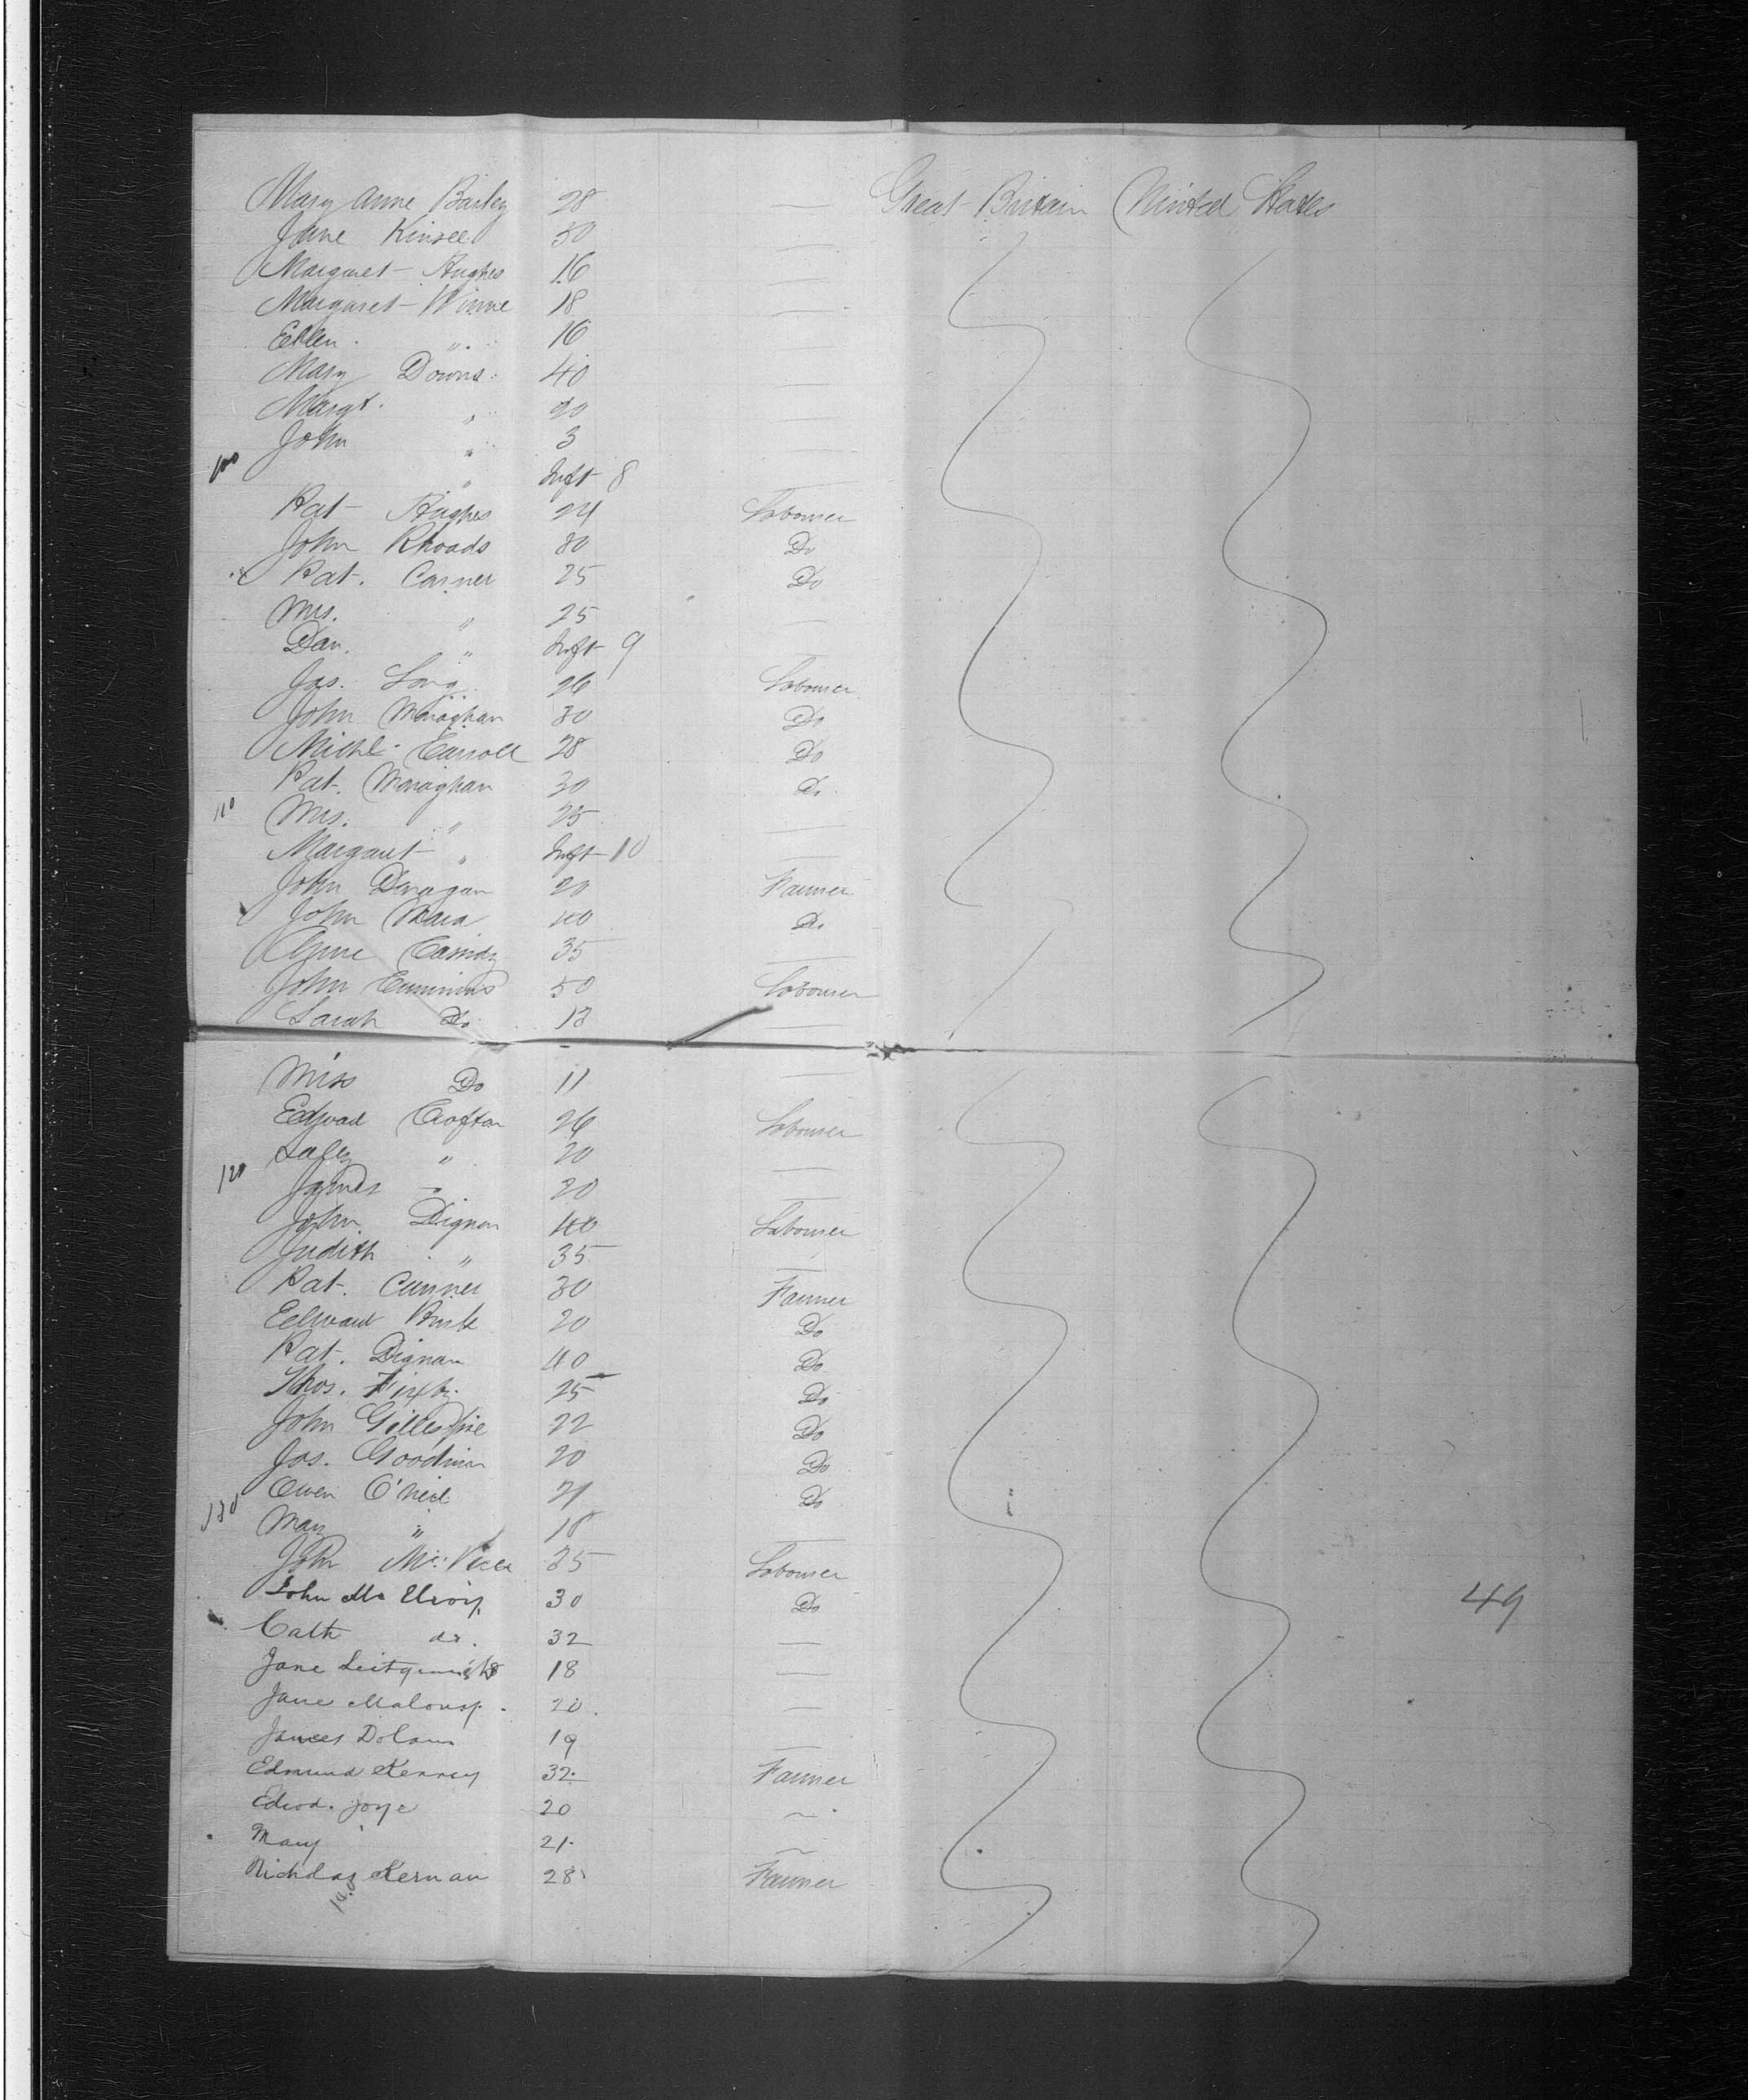 Mary Anne Bailey 28 — Great Britain United States
Jane Kinsel 30 —
Margaret Hughes 16 —
Margaret Winne 18 —
Ellen " 16 —
Mary Downs 40 —
Margt. " 20 —
John " 3 —
100 " Inft 8 —
Pat Hughes 24 Labourer
John Rhoads 30 Do
Pat. Carner 25 Do
Mrs. " 25 —
Dan. " Inft 9 —
Jas. Long 26 Labourer
John Monaghan 30 Do
Michl. Carroll 28 Do
Pat. Monaghan 30 Do
110 Mrs. " 25 —
Margaret " Inft 10 —
John Donagan 20 Farmer
John Mara 40 Do
Anne Cassidy 35 —
John Cummins 50 Labourer
Sarah Do 13 —
Miss Do 11 —
Edwad Crofton 26 Labourer
" 20 —
120 James " 20 —
John Dignan 40 Labourer
Judith " 35 —
Pat. Cunner 30 Farmer
Edward 20 Do
Pat. Dignan 40 Do
Thos. 25 Do
John Gillespie 22 Do
Jas. Goodwin 20 Do
Owen O'Neil 21 Do
130 Mary " 18 —
John 35 Labourer
John Mc Elroy 30 Do
49
Cath do. 32 —
Jane 18 —
Jane Malony 20. —
James Dolan 19 —
Edmund Kenney 32 Farmer
Edwd. Joye 20 ~
Mary 21 ~
Nicholas Kernan 28 Farmer
140